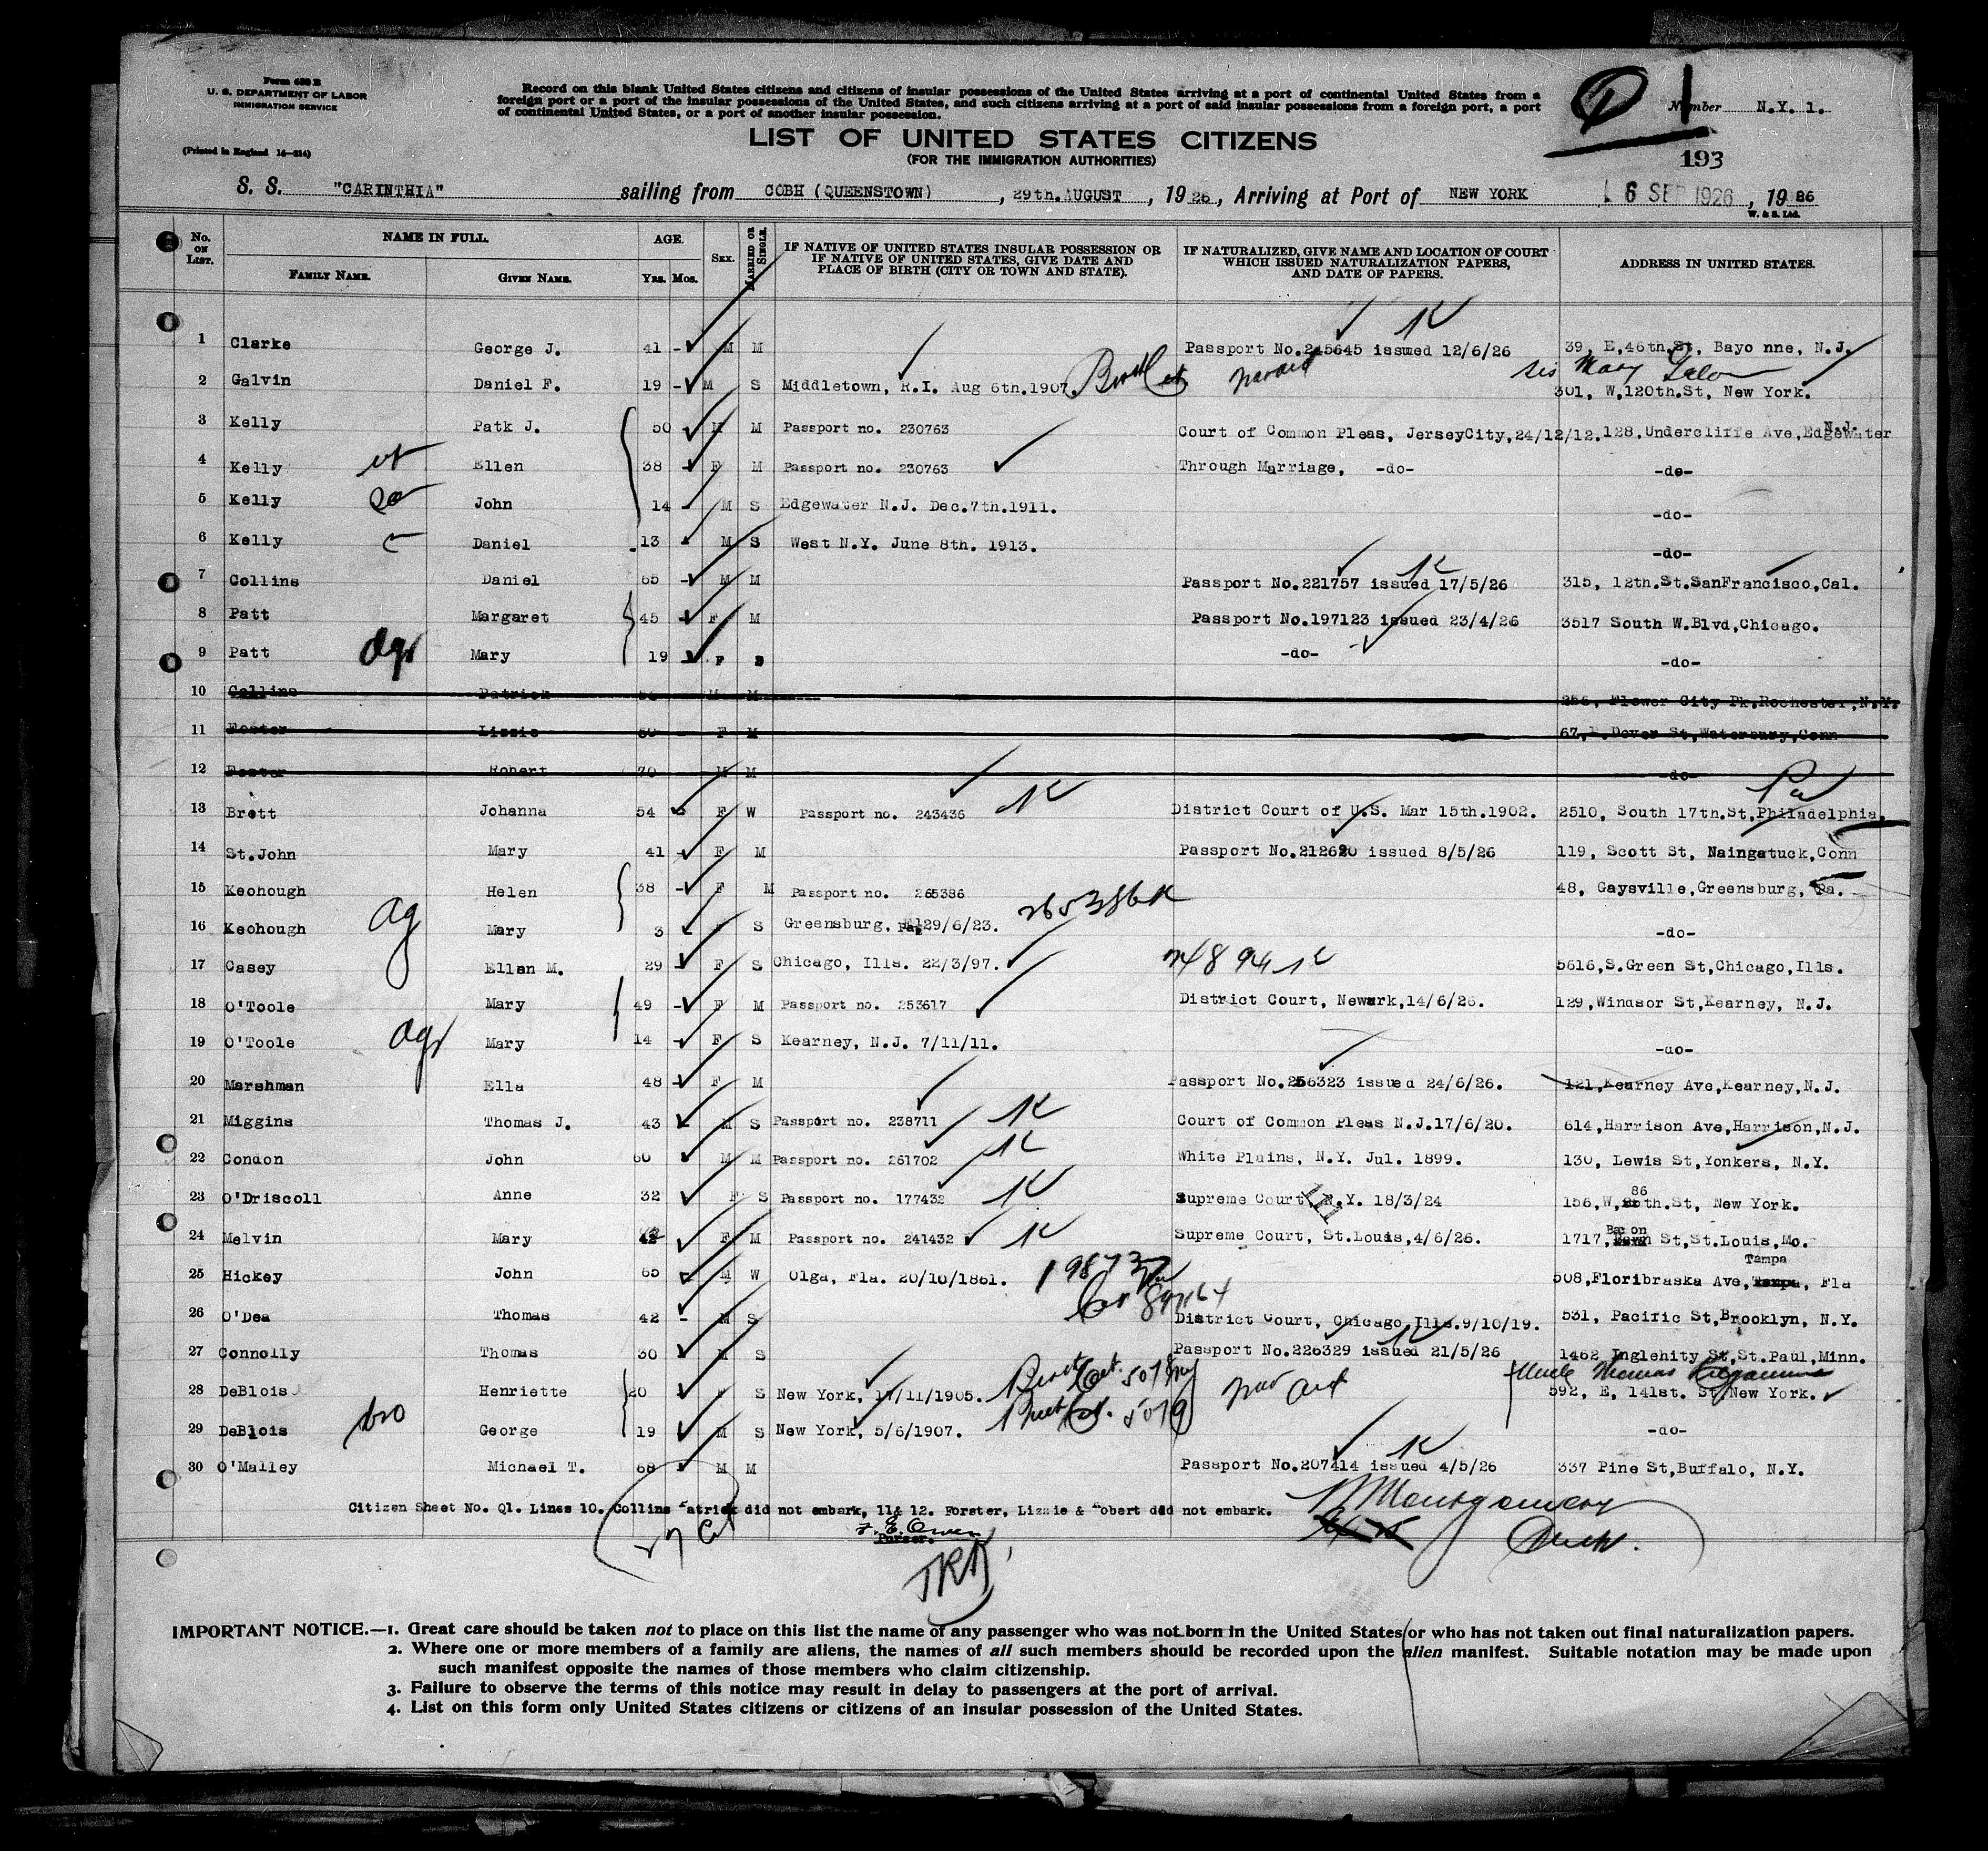 Form 630 B
U. S. DEPARTMENT OF LABOR
IMMIGRATION SERVICE
(Printed in England 14—214)
Record on this blank United States citizens and citizens of insular possessions of the United States arriving at a port of continental United States from a
foreign port or a port of the insular possessions of the United States, and such citizens arriving at a port of said insular possessions from a foreign port, a port
of continental United States, or a port of another insular possession.
LIST OF UNITED STATES CITIZENS
(FOR THE IMMIGRATION AUTHORITIES)
1
Number N.Y. 1.
193
S. S. "CARINTHIA" sailing from COBH (QUEENSTOWN), 29th.AUGUST, 1926, Arriving at Port of NEW YORK 6 SEP 1926, 1926
W. & S. Ltd.
No. ON LIST. NAME IN FULL. FAMILY NAME. GIVEN NAME. AGE. YRS. MOS. SEX. MARRIED OR SINGLE. IF NATIVE OF UNITED STATES INSULAR POSSESSION OR IF NATIVE OF UNITED STATES, GIVE DATE AND PLACE OF BIRTH (CITY OR TOWN AND STATE). IF NATURALIZED, GIVE NAME AND LOCATION OF COURT WHICH ISSUED NATURALIZATION PAPERS, AND DATE OF PAPERS. ADDRESS IN UNITED STATES.
1 Clarke George J. 41 - M M Passport No.245645 issued 12/6/26 39, E.46th.St, Bayo nne, N.J.
2 Galvin Daniel F. 19 - M S Middletown, R.I. Aug 6th.1907. sis Mary 301, W.120th.St, New York.
3 Kelly Patk J. 50 M M Passport no. 230763 Court of Common Pleas, JerseyCity,24/12/12. 128,Undercliffe Ave,Edgewater N.J.
4 Kelly Ellen 38 - F M Passport no. 230763 Through Marriage, -do- -do-
5 Kelly John 14 - M S Edgewater N.J. Dec.7th.1911. -do-
6 Kelly Daniel 13 M S West N.Y. June 8th. 1913. -do-
7 Collins Daniel 65 - M M Passport No.221757 issued 17/5/26 315, 12th.St.SanFrancisco,Cal.
8 Patt Margaret 45 - F M Passport No.197123 issued 23/4/26 3517 South W.Blvd,Chicago.
9 Patt Mary 19 F S -do- -do-
10 Collins Patrick M M 256, Flower City Pk.Rochester,N.Y.
11 Foster Lizzie 60 F M 67, Dover St,Waterbury,Conn
12 Foster Robert 70 M M -do-
13 Brett Johanna 54 - F W Passport no. 243436 District Court of U.S. Mar 15th.1902. 2510, South 17th.St,Philadelphia. Pa
14 St.John Mary 41 - F M Passport No.212620 issued 8/5/26 119, Scott St, Naingatuck,Conn
15 Keohough Helen 38 - F M Passport no. 265386 48, Gaysville,Greensburg, Pa.
16 Keohough Mary 3 F S Greensburg, Pa 29/6/23. 265386 -do-
17 Casey Ellen M. 29 F S Chicago, Ills. 22/3/97. 5616,S.Green St,Chicago,Ills.
18 O'Toole Mary 49 - F M Passport no. 253617 District Court, Newark,14/6/26. 129,Windsor St,Kearney, N.J.
19 O'Toole Mary 14 - F S Kearney, N.J. 7/11/11. -do-
20 Marshman Ella 48 - F M Passport No.256323 issued 24/6/26. 121,Kearney Ave,Kearney,N.J.
21 Miggins Thomas J. 43 M S Passport no. 238711 Court of Common Pleas N.J.17/6/20. 614,Harrison Ave,Harrison,N.J.
22 Condon John 60 M M Passport no. 261702 White Plains, N.Y. Jul. 1899. 130, Lewis St,Yonkers, N.Y.
23 O'Driscoll Anne 32 F S Passport no. 177432 Supreme Court, N.Y. 18/3/24 156,W,86th.St, New York.
24 Melvin Mary 42 F M Passport no. 241432 Supreme Court, St.Louis,4/6/26. 1717, Bacon St,St.Louis,Mo.
25 Hickey John 65 - M W Olga, Fla. 20/10/1861. 508,Floribraska Ave, Tampa, Fla
26 O'Dea Thomas 42 - M S District Court, Chicago,Ills.9/10/19. 531, Pacific St,Brooklyn, N.Y.
27 Connolly Thomas 30 M S Passport No.226329 issued 21/5/26 1462 Inglehity St,St.Paul,Minn.
28 DeBlois Henriette 20 F S New York, 17/11/1905. Birth Cert. 5078 Uncle Thomas 592, E. 141st. St New York.
29 DeBlois bro George 19 M S New York, 5/6/1907. Birth Cert. 5079 -do-
30 O'Malley Michael T. 68 M M Passport No.207414 issued 4/5/26 337 Pine St,Buffalo, N.Y.
Citizen Sheet No. Q1. Lines 10. Collins Patrick did not embark, 11& 12. Forster, Lizzie & Robert did not embark.
F. E. Owen
Purser.
Montgomery
IMPORTANT NOTICE.—1. Great care should be taken not to place on this list the name of any passenger who was not born in the United States or who has not taken out final naturalization papers.
2. Where one or more members of a family are aliens, the names of all such members should be recorded upon the alien manifest. Suitable notation may be made upon
such manifest opposite the names of those members who claim citizenship.
3. Failure to observe the terms of this notice may result in delay to passengers at the port of arrival.
4. List on this form only United States citizens or citizens of an insular possession of the United States.